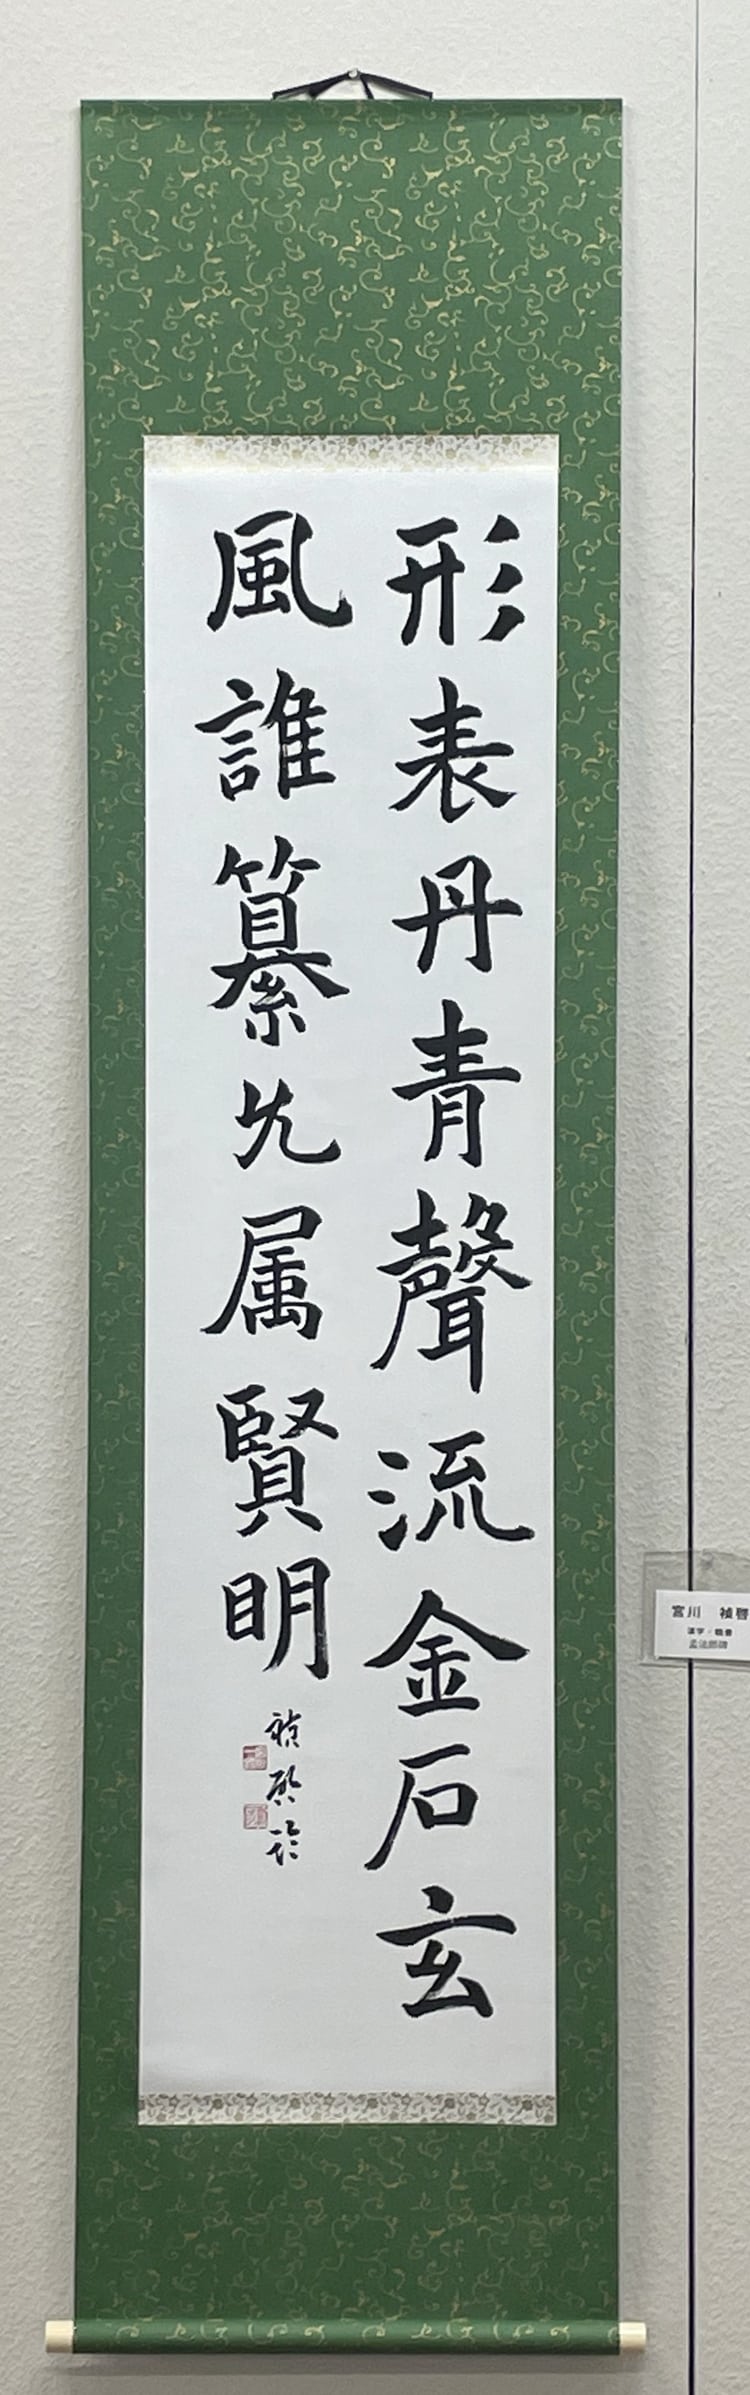 形表丹青聲流金石玄
風誰纂先属賢明
禎啓臨
宮川 禎啓
漢字・臨書
孟法師碑